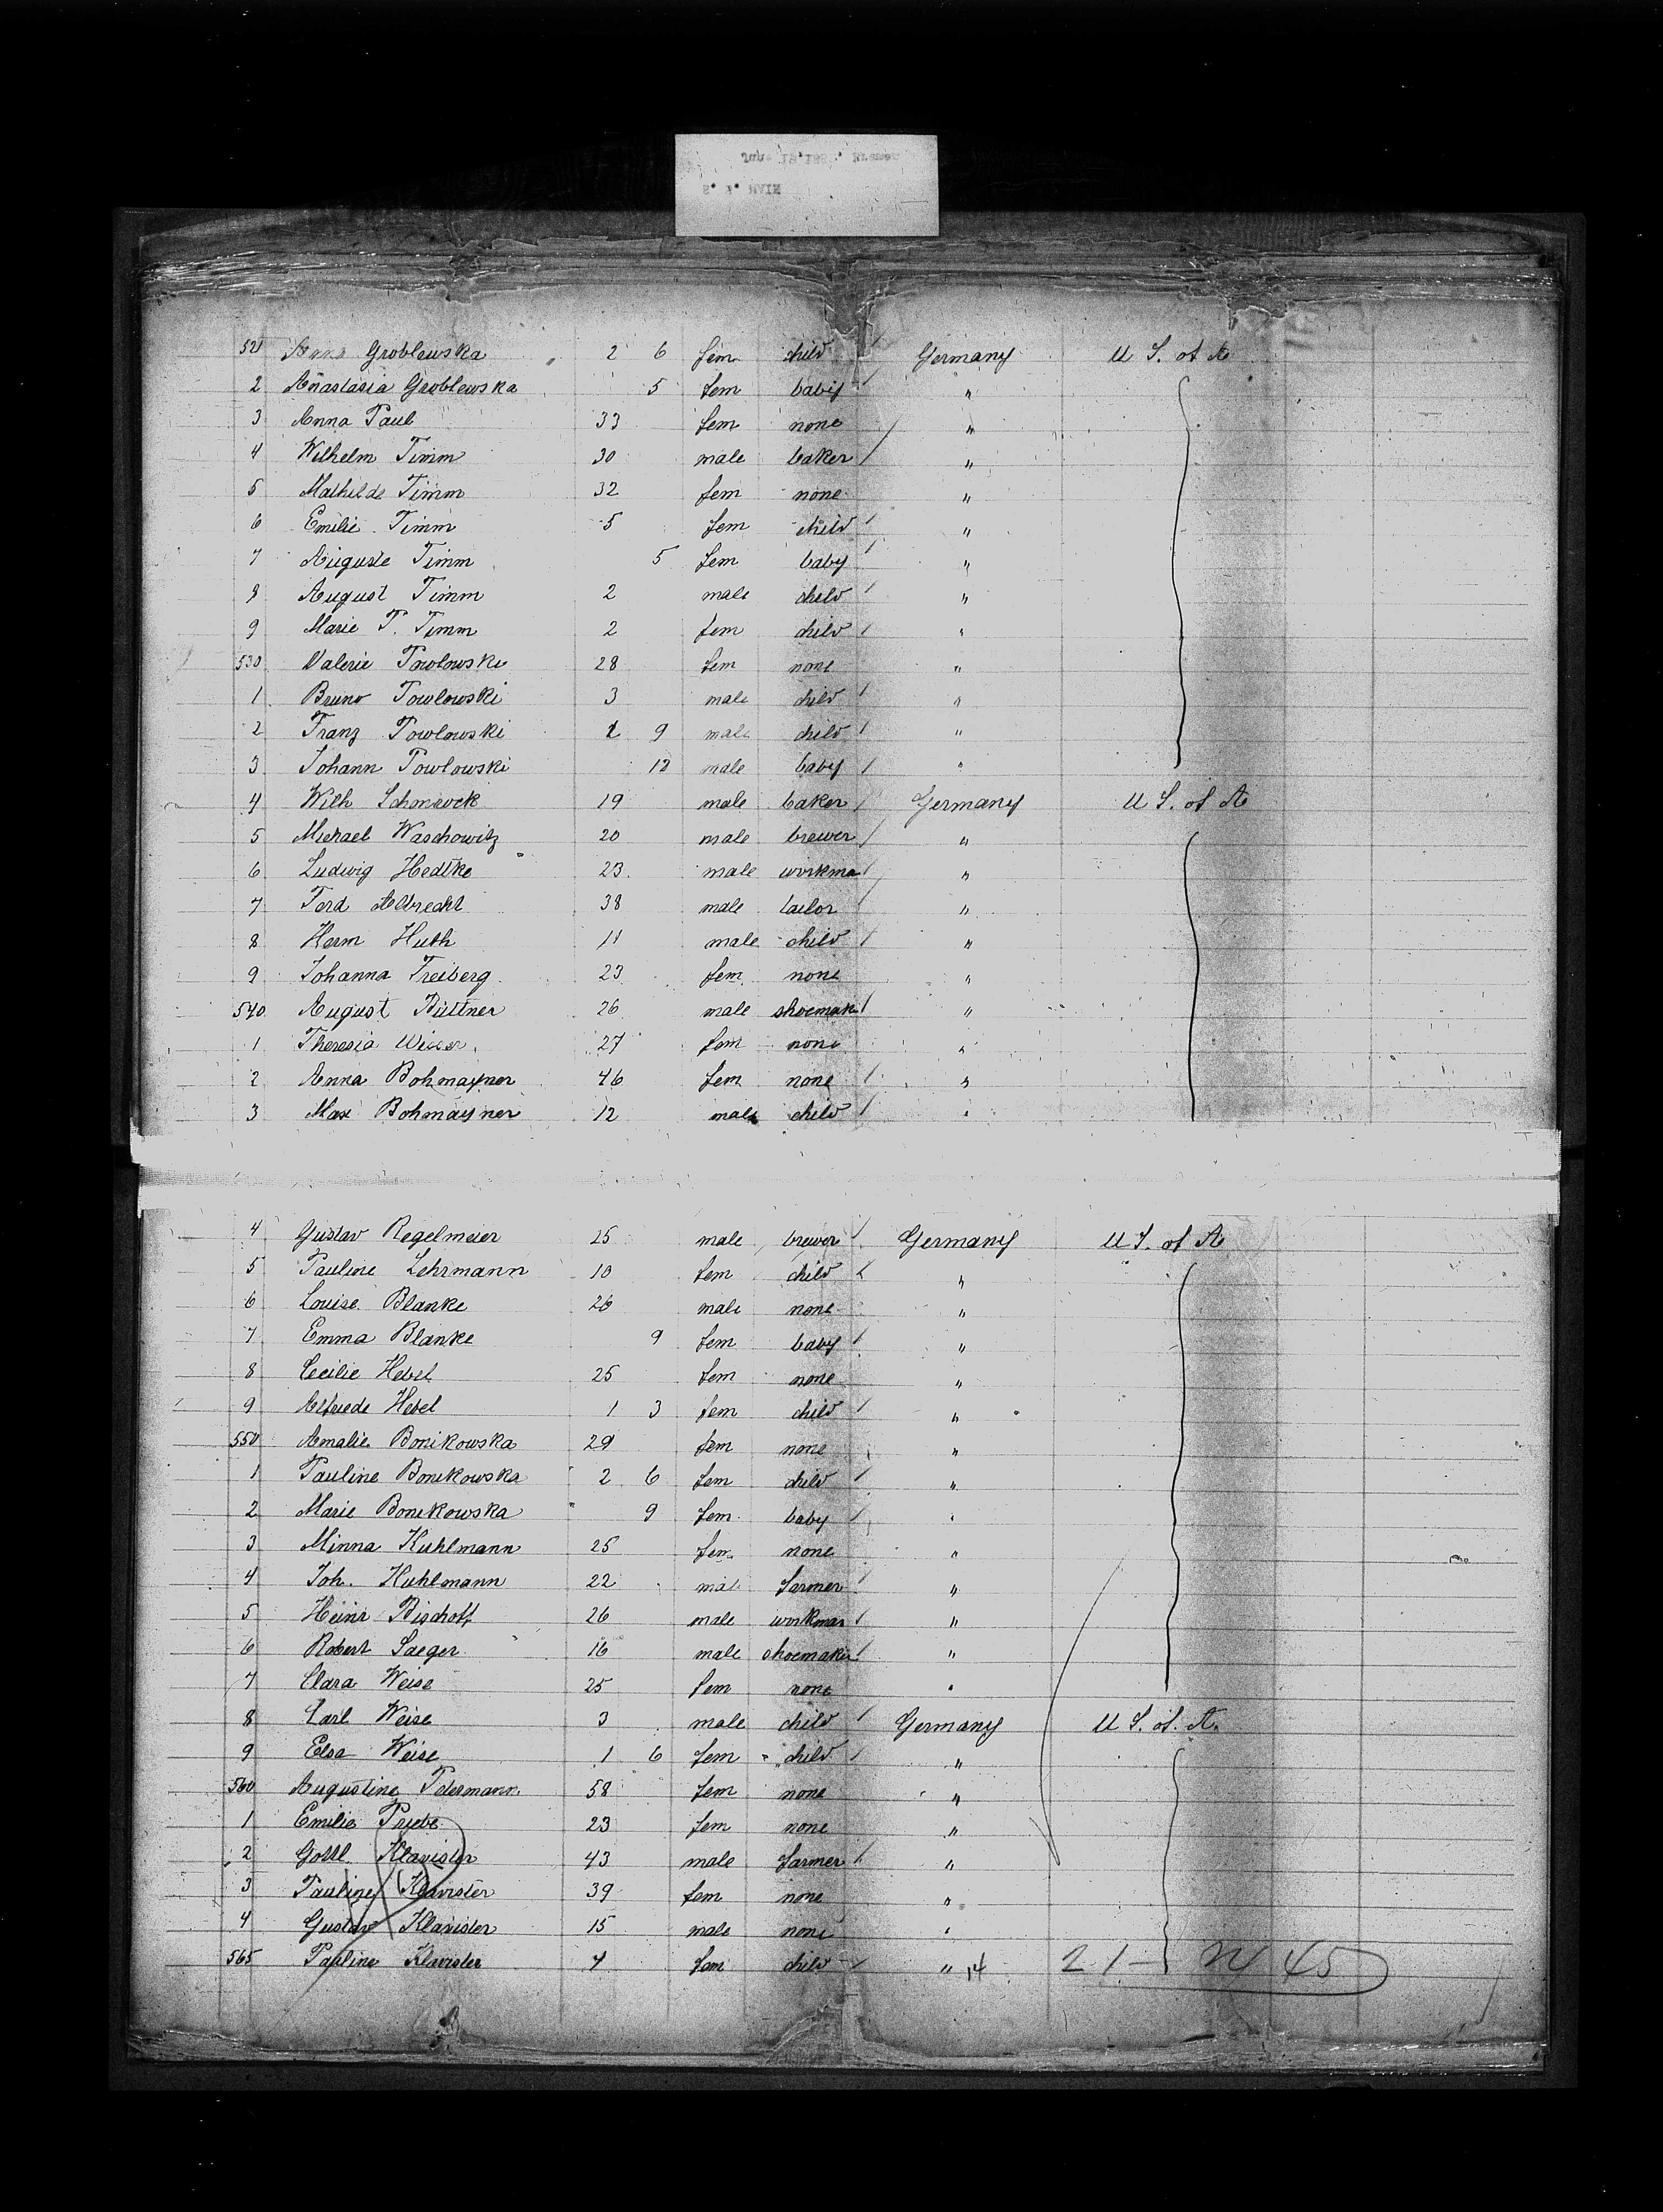 521 Anna Groblewska 2 6 fem child Germany U S. of A
2 Anastasia Groblewska 5 fem baby "
3 Anna Paul 33 fem none "
4 Wilhelm Timm 30 male baker "
5 Mathilde Timm 32 fem none "
6 Emilie Timm 5 fem child "
7 Auguste Timm 5 fem baby "
8 August Timm 2 male child "
9 Marie P. Timm 2 fem child "
530 Valerie Powlowski 28 fem none "
1 Bruno Powlowski 3 male child "
2 Franz Powlowski 9 male child "
3 Johann Powlowski 12 male baby "
4 Wilh 19 male baker Germany U S. of A
5 Michael Waschowitz 20 male brewer "
6 Ludwig Hedtke 23 male workma "
7 Ferd Albrecht 38 male tailor "
8 Herm Huth 11 male child "
9 Johanna Freiberg 23 fem none "
540 August Büttner 26 male shoemak "
1 Theresia 27 fem none "
2 Anna Bohmayner 46 fem none "
3 Max Bohmayner 12 male child "
4 Gustav Regelmeier 25 male brewer Germany U S. of A
5 Pauline Lehrmann 10 fem child "
6 Louise Blanke 26 male none "
7 Emma Blanke 9 fem baby "
8 Cecilie Hebel 25 fem none "
9 Alfriede Hebel 1 3 fem child "
550 Amalie Bonikowska 29 fem none "
1 Pauline Bonikowska 2 6 fem child "
2 Marie Bonikowska 9 fem baby "
3 Minna Kuhlmann 25 fem none "
4 Joh. Kuhlmann 22 male farmer "
5 Heinr Bischoff 26 male workman "
6 Robert Saeger 16 male shoemaker "
7 Clara Weise 25 fem none "
8 Carl Weise 3 male child Germany U S. of. A.
9 Elsa Weise 1 6 fem child "
560 Augustine Petermann 58 fem none "
1 Emilie Priebe 23 fem none "
2 Gottl Klavister 43 male farmer "
3 Pauline Klavister 39 fem none "
4 Gustav Klavister 15 male none "
565 Pauline Klavister fem child " 14 21- 45